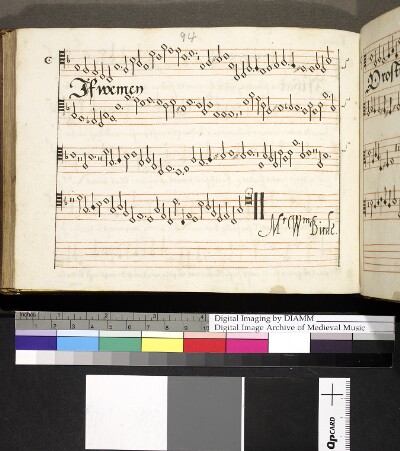 94
If wemen
Mr Wm Birde.
Prost
Inches 1 2 3 4
Digital Imaging by DIAMM
Digital Image Archive of Medieval Music
QPCARD